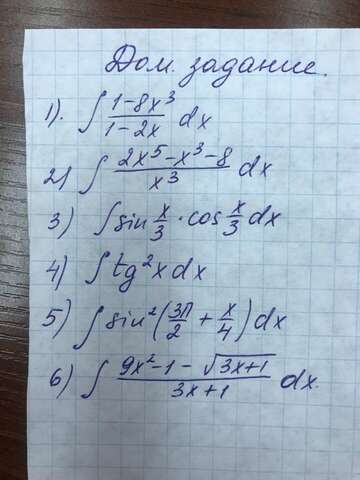 Дом. задание.
1). ∫ (1-8x³)/(1-2x) dx
2) ∫ (2x⁵-x³-8)/x³ dx
3) ∫ sin x/3 · cos x/3 dx
4) ∫ tg²x dx
5) ∫ sin²(3π/2 + x/4) dx
6) ∫ (9x²-1-√(3x+1))/(3x+1) dx.